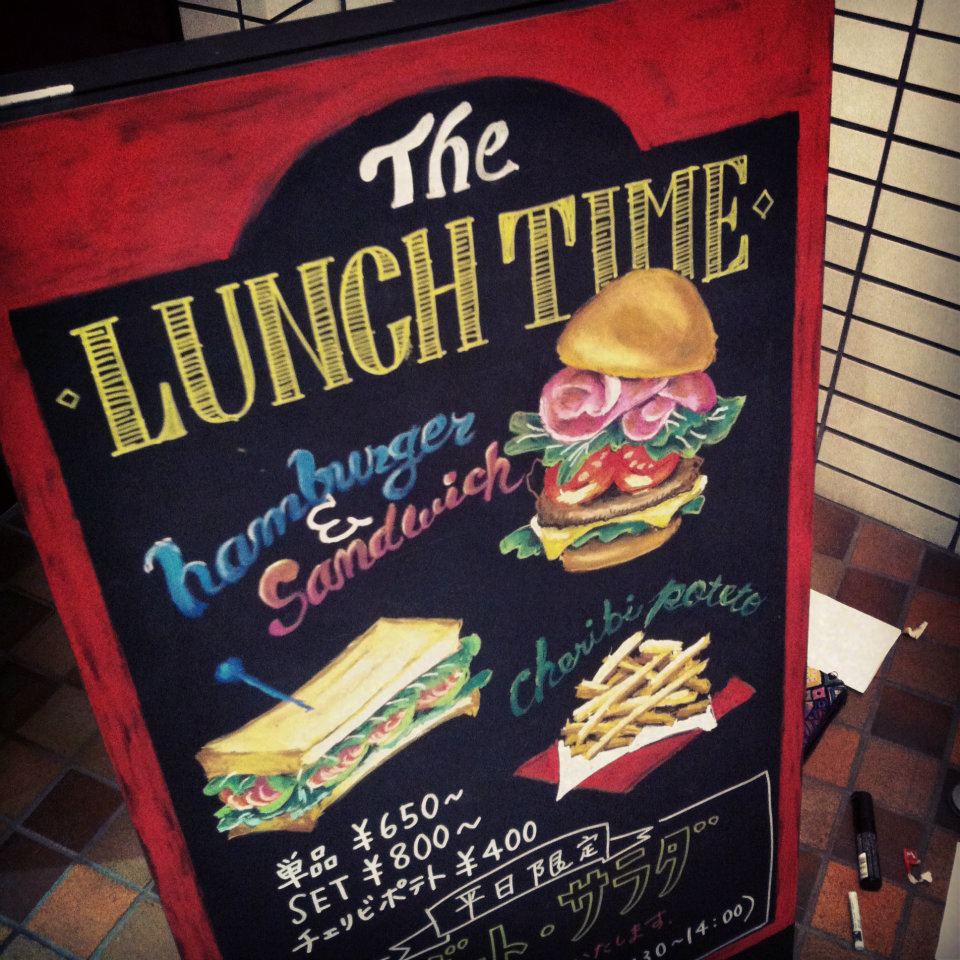 The
LUNCH TIME
hamburger
&
Sandwich
cheribi poteto
単品 ¥650~
SET ¥800~
チェリビポテト ¥400
平日限定
ト・サラダ
たします。
30~14:00)